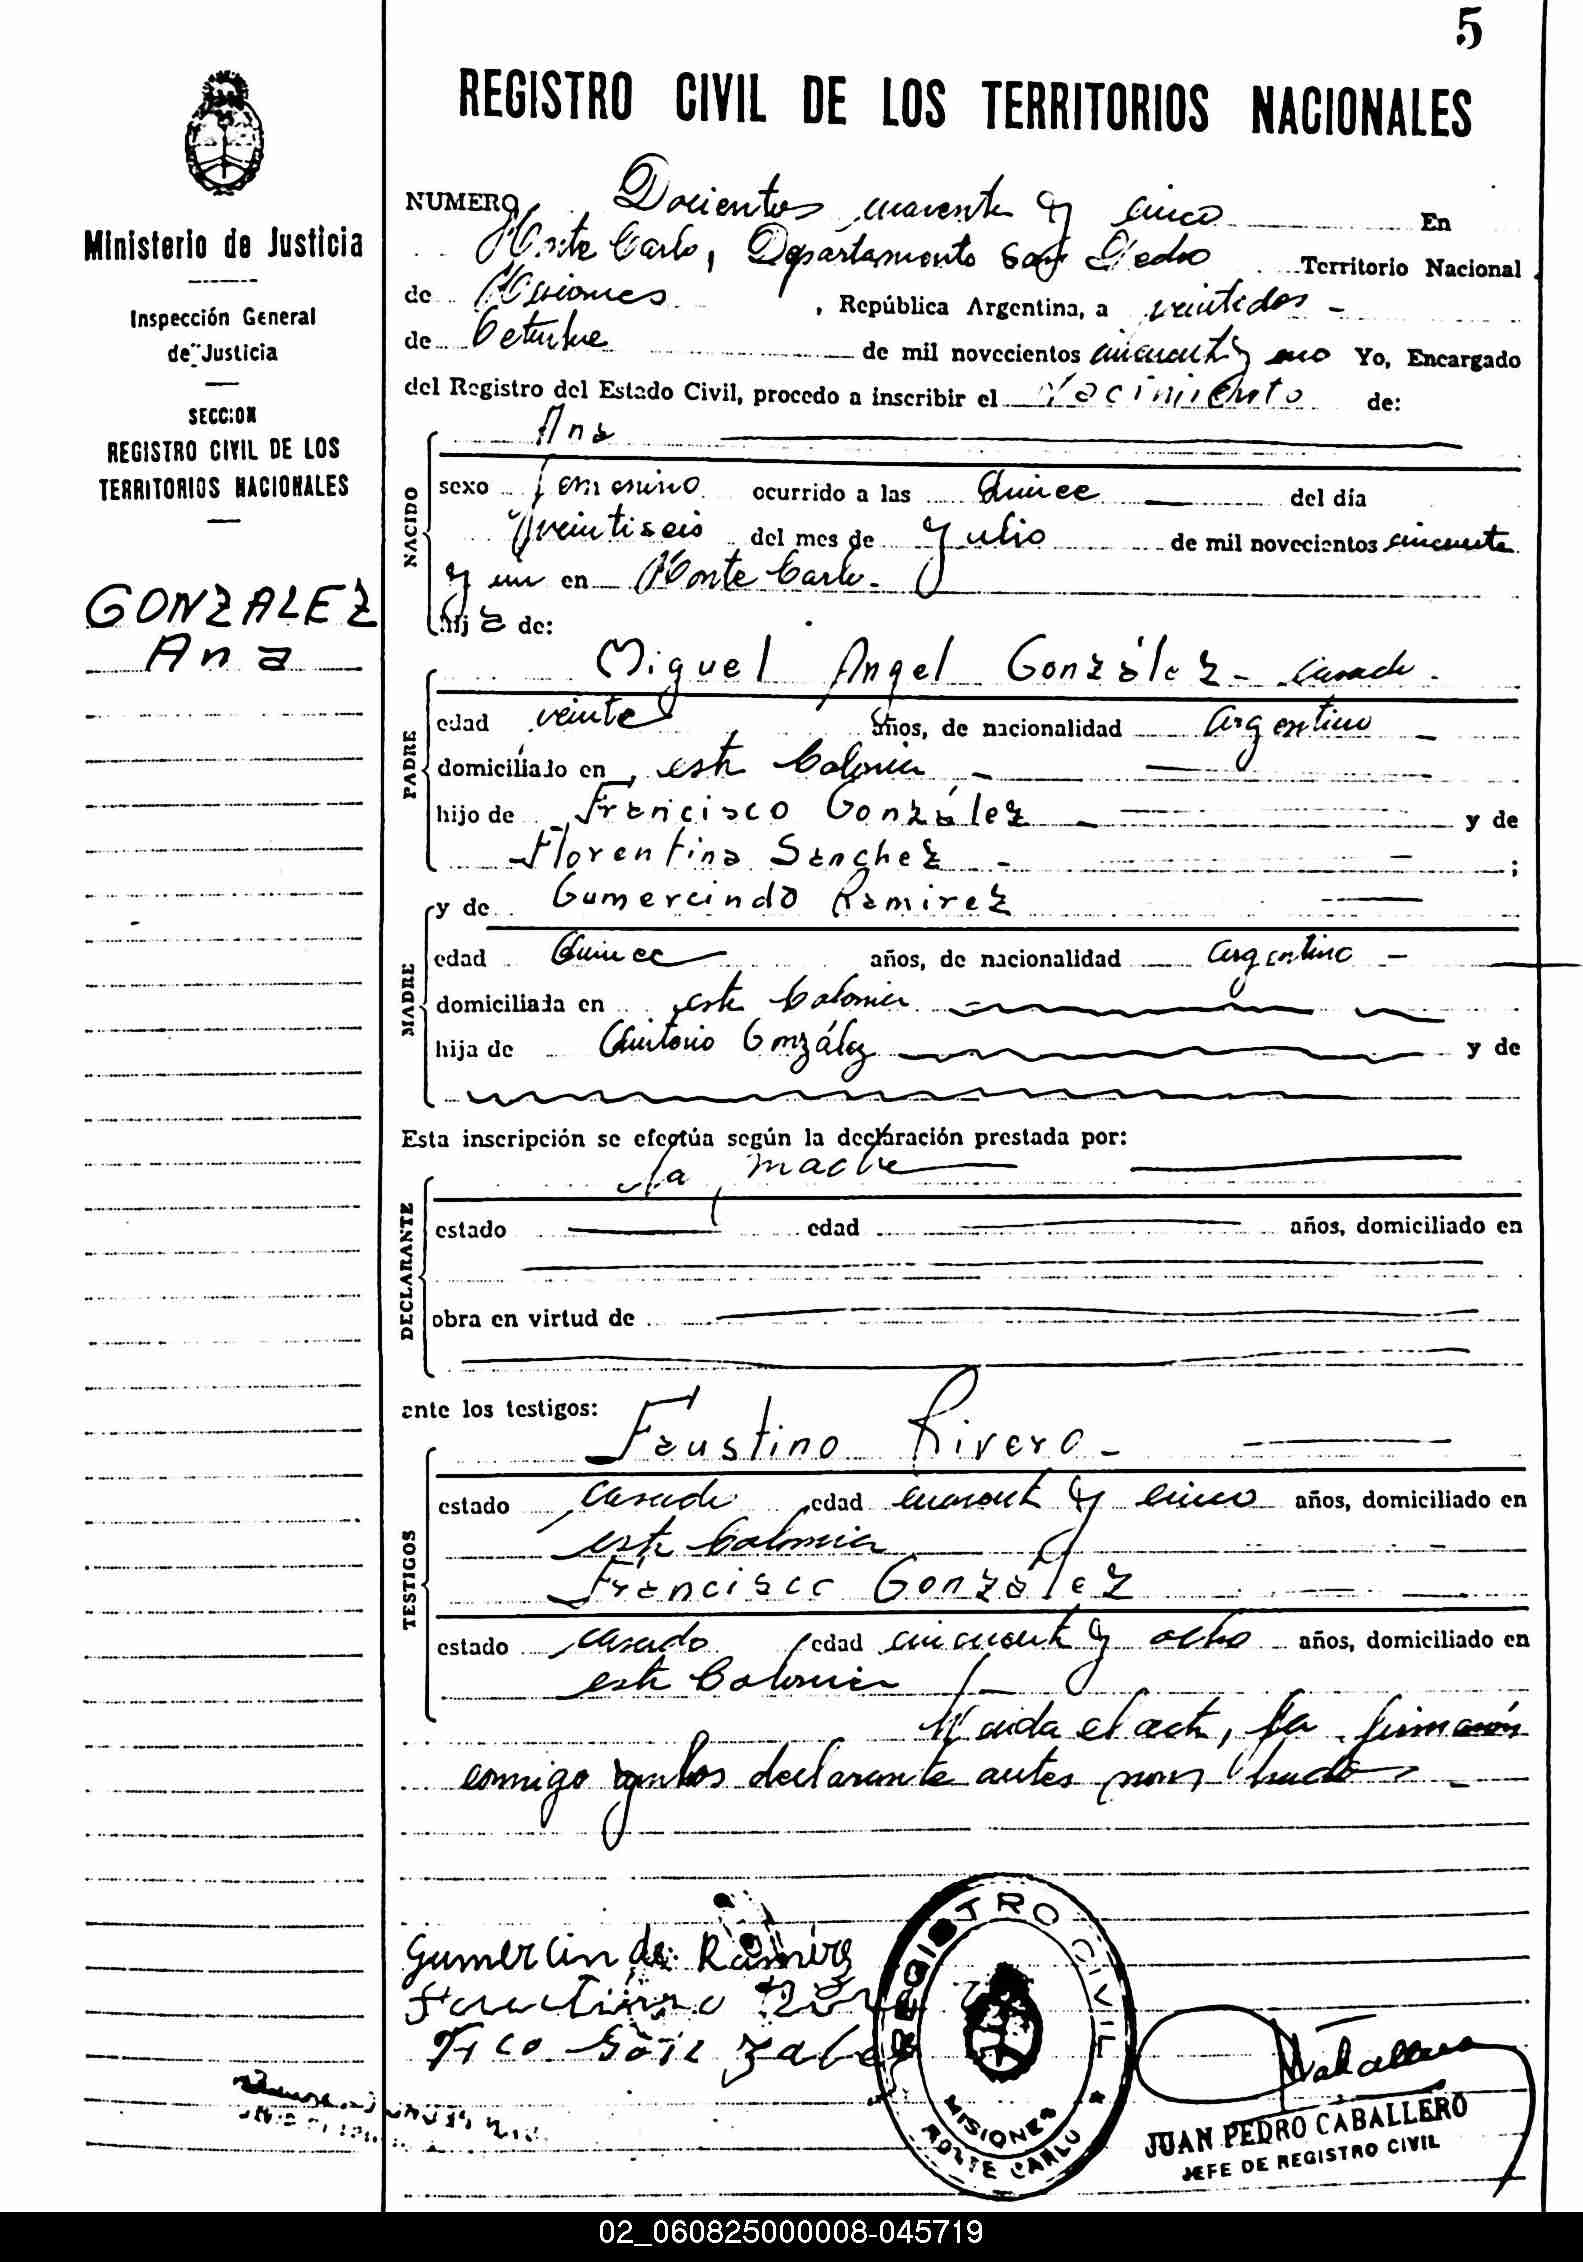 5
REGISTRO CIVIL DE LOS TERRITORIOS NACIONALES
Ministerio de Justicia
Inspección General
de Justicia
SECCION
REGISTRO CIVIL DE LOS
TERRITORIOS NACIONALES
GONZALEZ
Ana
NUMERO Docientos cuarenta y cinco En
Monte Carlo, Departamento San Pedro Territorio Nacional
de Misiones, República Argentina, a veintidos -
de Octubre de mil novecientos cincuenta y uno Yo, Encargado
del Registro del Estado Civil, procedo a inscribir el Nacimiento de:
NACIDO
Ana
sexo femenino ocurrido a las Quince del día
veintiseis del mes de Julio de mil novecientos cincuenta
y un en Monte Carlo.
hija de:
PADRE
Miguel Angel González - casado -
edad veinte años, de nacionalidad argentino -
domiciliado en esta Colonia -
hijo de Francisco González - y de
Florentina Sánchez - ;
MADRE
y de Gumercinda Ramirez
edad Quince años, de nacionalidad argentina -
domiciliada en esta Colonia
hija de González y de
Esta inscripción se efectúa según la declaración prestada por:
DECLARANTE
la madre
estado edad años, domiciliado en
obra en virtud de
ante los testigos:
TESTIGOS
Faustino Rivero -
estado casado edad cuarenta y cinco años, domiciliado en
esta Colonia
Francisco González
estado casado edad cincuenta y ocho años, domiciliado en
esta Colonia
el acta, la firmaron
conmigo los declarante antes nombrado -
Gumercinda Ramirez
Fco Gonzalez
REGISTRO CIVIL
MISIONES
MONTE CARLO
Caballero
JUAN PEDRO CABALLERO
JEFE DE REGISTRO CIVIL
02_060825000008-045719